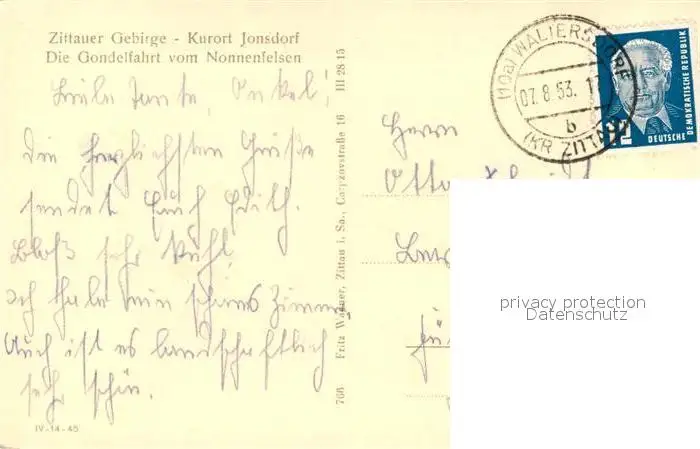 Zittauer Gebirge - Kurort Jonsdorf
Die Gondelfahrt vom Nonnenfelsen
Liebe Tante, Onkel!
Die herzlichsten Grüße
sendet Euch Edith.
Bloß sehr kühl.
Ich habe ein schönes Zimmer,
Auch ist es landschaftlich
sehr schön.
IV-14-45
766 Fritz Wagner, Zittau i. Sa., Carpzovstraße 16 III 28 15
(10a) WALTERSDORF
07.8.53.
b
(KR ZITTAU)
DEUTSCHE
DEMOKRATISCHE REPUBLIK
Herrn
Otto
privacy protection
Datenschutz